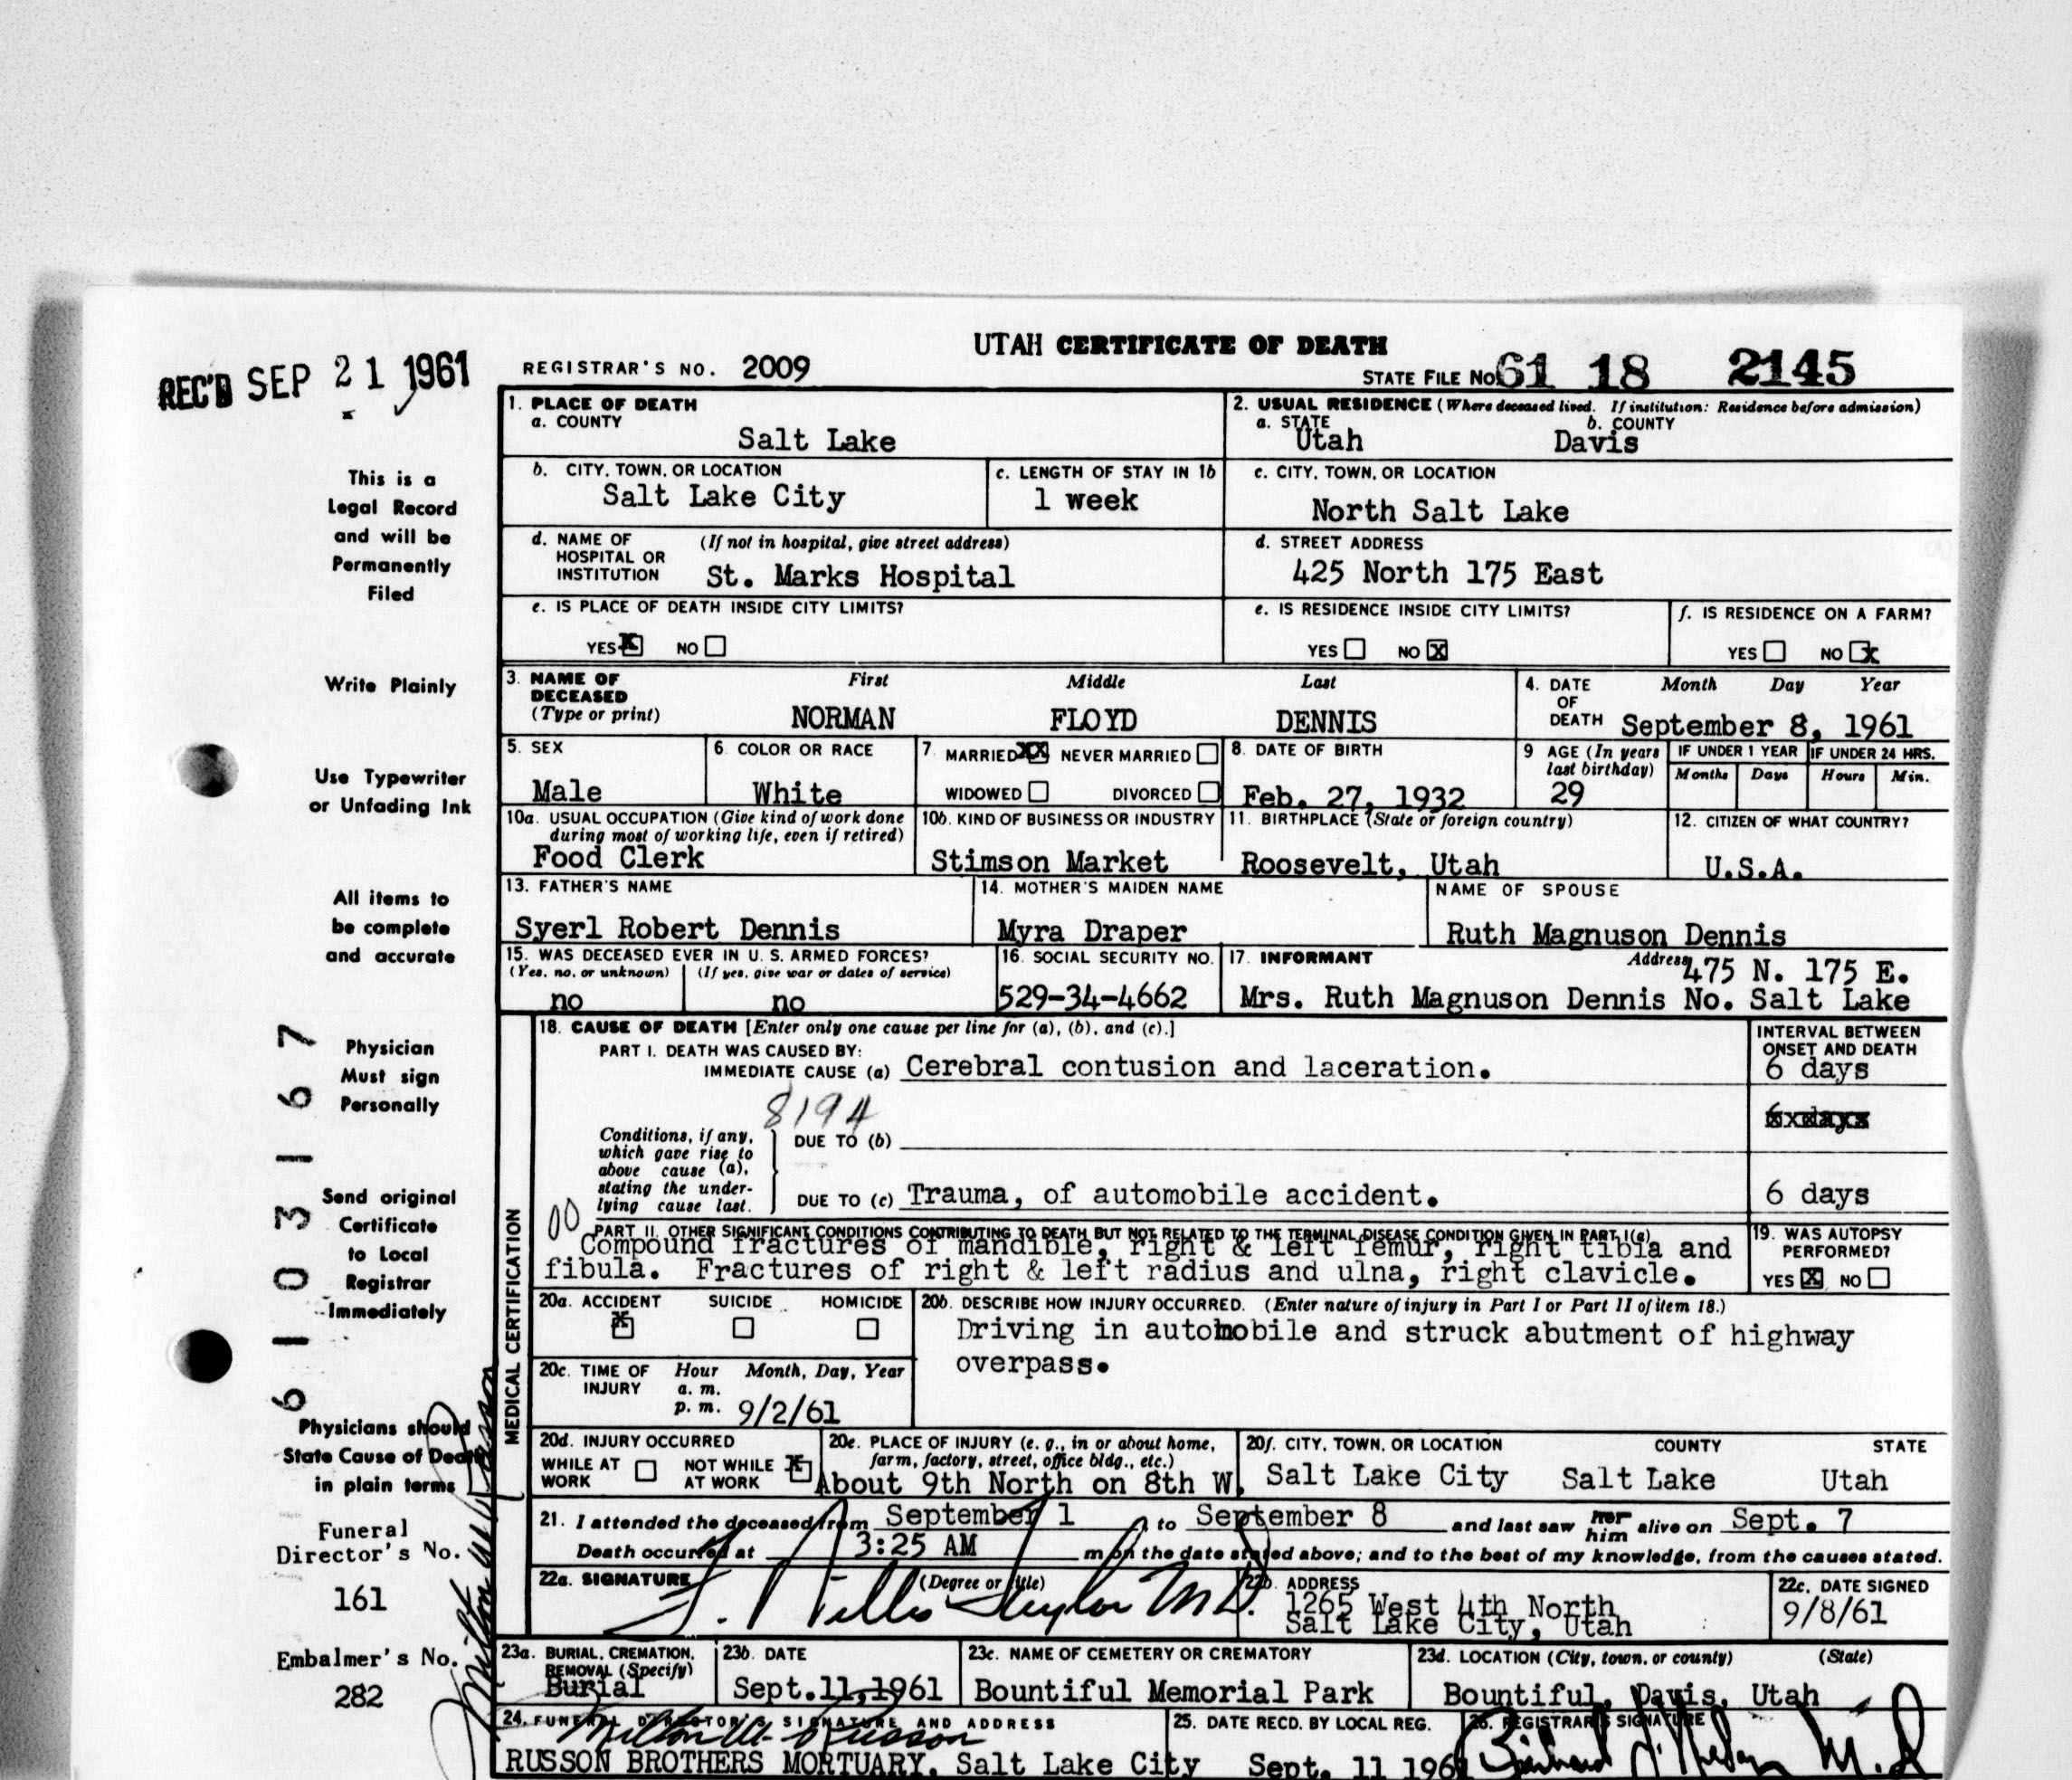 UTAH CERTIFICATE OF DEATH
REC'D SEP 21 1961
REGISTRAR'S NO. 2009
STATE FILE NO. 61 18 2145
This is a
Legal Record
and will be
Permanently
Filed
Write Plainly
Use Typewriter
or Unfading Ink
All items to
be complete
and accurate
Physician
Must sign
Personally
Send original
Certificate
to Local
Registrar
Immediately
Physicians should
State Cause of Death
in plain terms
Funeral
Director's No.
161
Embalmer's No.
282
61 03167
1. PLACE OF DEATH
a. COUNTY
Salt Lake
2. USUAL RESIDENCE (Where deceased lived. If institution: Residence before admission)
a. STATE b. COUNTY
Utah Davis
b. CITY, TOWN, OR LOCATION
Salt Lake City
c. LENGTH OF STAY IN 1b
1 week
c. CITY, TOWN, OR LOCATION
North Salt Lake
d. NAME OF (If not in hospital, give street address)
HOSPITAL OR
INSTITUTION St. Marks Hospital
d. STREET ADDRESS
425 North 175 East
e. IS PLACE OF DEATH INSIDE CITY LIMITS?
YES X NO
e. IS RESIDENCE INSIDE CITY LIMITS?
YES NO X
f. IS RESIDENCE ON A FARM?
YES NO X
3. NAME OF First Middle Last
DECEASED
(Type or print) NORMAN FLOYD DENNIS
4. DATE Month Day Year
OF
DEATH September 8, 1961
5. SEX
Male
6. COLOR OR RACE
White
7. MARRIED XX NEVER MARRIED
WIDOWED DIVORCED
8. DATE OF BIRTH
Feb. 27, 1932
9 AGE (In years
last birthday)
29
IF UNDER 1 YEAR IF UNDER 24 HRS.
Months Days Hours Min.
10a. USUAL OCCUPATION (Give kind of work done
during most of working life, even if retired)
Food Clerk
10b. KIND OF BUSINESS OR INDUSTRY
Stimson Market
11. BIRTHPLACE (State or foreign country)
Roosevelt, Utah
12. CITIZEN OF WHAT COUNTRY?
U.S.A.
13. FATHER'S NAME
Syerl Robert Dennis
14. MOTHER'S MAIDEN NAME
Myra Draper
NAME OF SPOUSE
Ruth Magnuson Dennis
15. WAS DECEASED EVER IN U. S. ARMED FORCES?
(Yes, no, or unknown) (If yes, give war or dates of service)
no no
16. SOCIAL SECURITY NO.
529-34-4662
17. INFORMANT Address 475 N. 175 E.
Mrs. Ruth Magnuson Dennis No. Salt Lake
MEDICAL CERTIFICATION
18. CAUSE OF DEATH [Enter only one cause per line for (a), (b), and (c).]
INTERVAL BETWEEN
ONSET AND DEATH
PART I. DEATH WAS CAUSED BY:
IMMEDIATE CAUSE (a) Cerebral contusion and laceration. 6 days
8194
Conditions, if any,
which gave rise to
above cause (a),
stating the under-
lying cause last.
DUE TO (b)
DUE TO (c) Trauma, of automobile accident. 6 days
00
PART II. OTHER SIGNIFICANT CONDITIONS CONTRIBUTING TO DEATH BUT NOT RELATED TO THE TERMINAL DISEASE CONDITION GIVEN IN PART I(a)
Compound fractures of mandible, right & left femur, right tibia and
fibula. Fractures of right & left radius and ulna, right clavicle.
19. WAS AUTOPSY
PERFORMED?
YES X NO
20a. ACCIDENT SUICIDE HOMICIDE
X
20b. DESCRIBE HOW INJURY OCCURRED. (Enter nature of injury in Part I or Part II of item 18.)
Driving in automobile and struck abutment of highway
overpass.
20c. TIME OF Hour Month, Day, Year
INJURY a. m.
p. m. 9/2/61
20d. INJURY OCCURRED
WHILE AT WORK NOT WHILE AT WORK X
20e. PLACE OF INJURY (e. g., in or about home,
farm, factory, street, office bldg., etc.)
About 9th North on 8th W.
20f. CITY, TOWN, OR LOCATION COUNTY STATE
Salt Lake City Salt Lake Utah
21. I attended the deceased from September 1 to September 8 and last saw her him alive on Sept. 7
Death occurred at 3:25 AM m on the date stated above; and to the best of my knowledge, from the causes stated.
22a. SIGNATURE (Degree or title)
M.D.
22b. ADDRESS
1265 West 4th North
Salt Lake City, Utah
22c. DATE SIGNED
9/8/61
23a. BURIAL, CREMATION,
REMOVAL (Specify)
Burial
23b. DATE
Sept.11,1961
23c. NAME OF CEMETERY OR CREMATORY
Bountiful Memorial Park
23d. LOCATION (City, town, or county) (State)
Bountiful, Davis, Utah
24. FUNERAL DIRECTOR'S SIGNATURE AND ADDRESS
RUSSON BROTHERS MORTUARY, Salt Lake City
25. DATE RECD. BY LOCAL REG.
Sept. 11 1961
26. REGISTRAR'S SIGNATURE